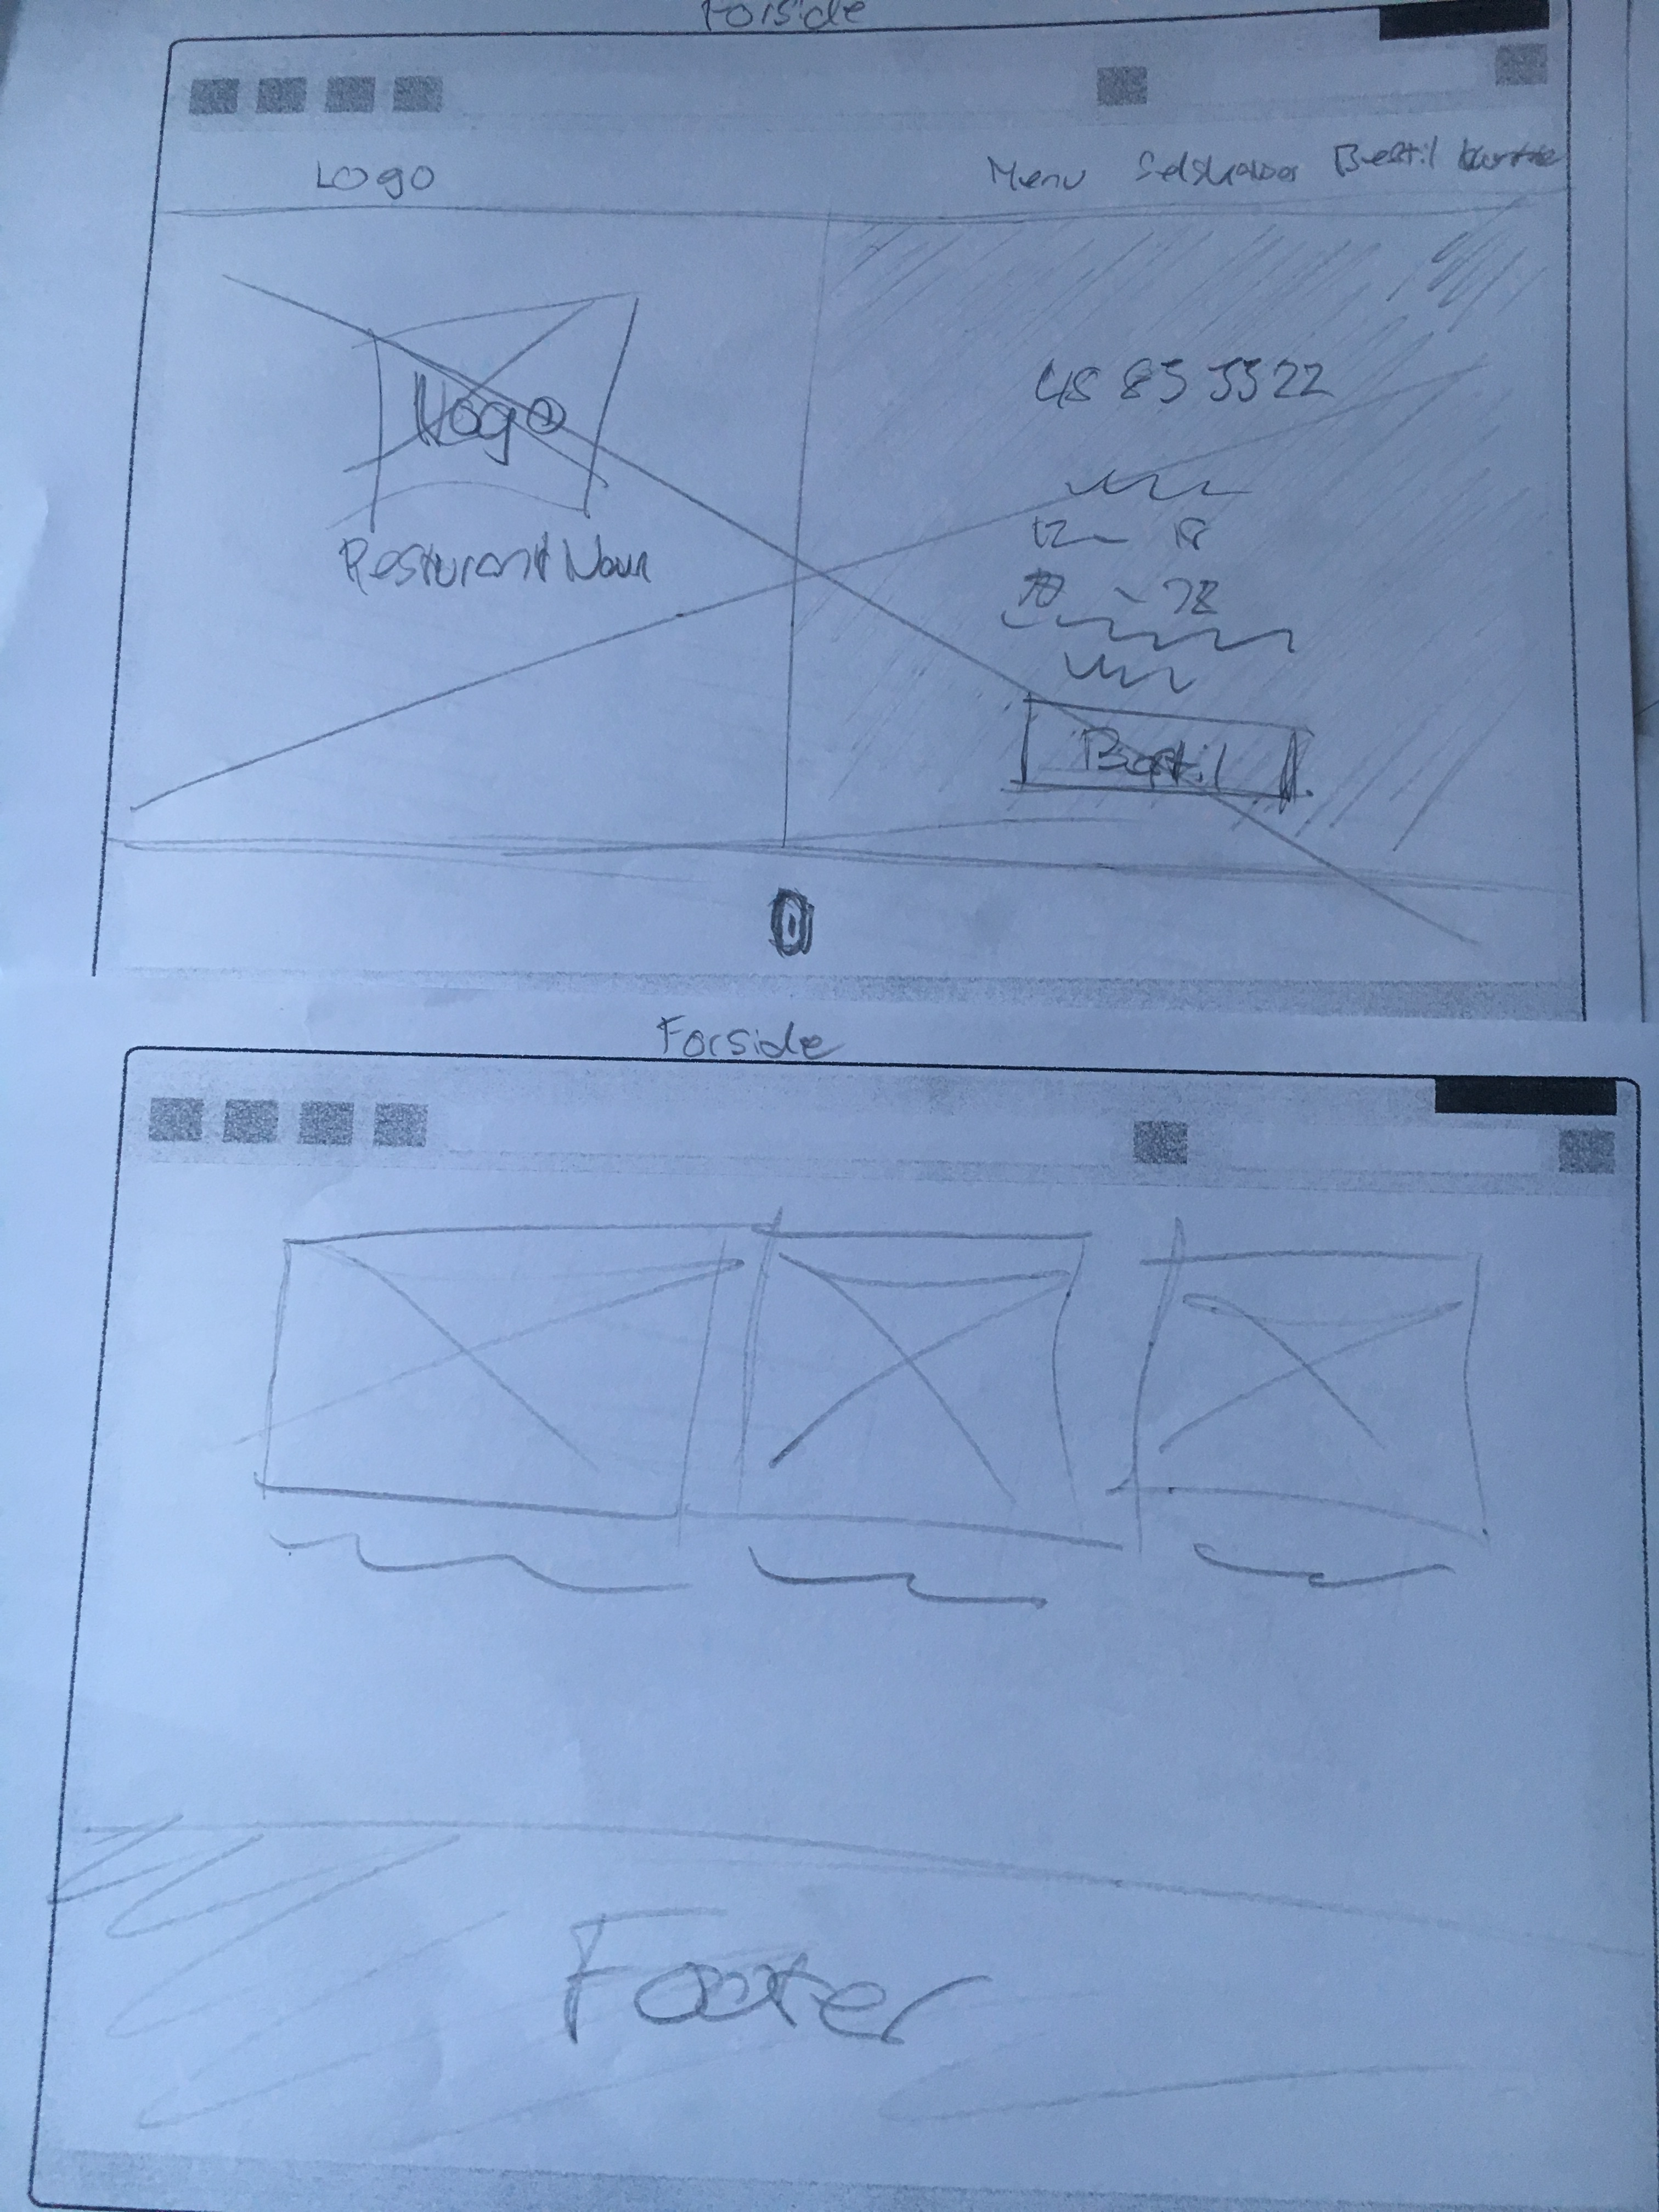 Forside
Logo
Menu Selskaber Bestil
Logo
Resturant Navn
12 - 18
Bestil
Forside
Footer